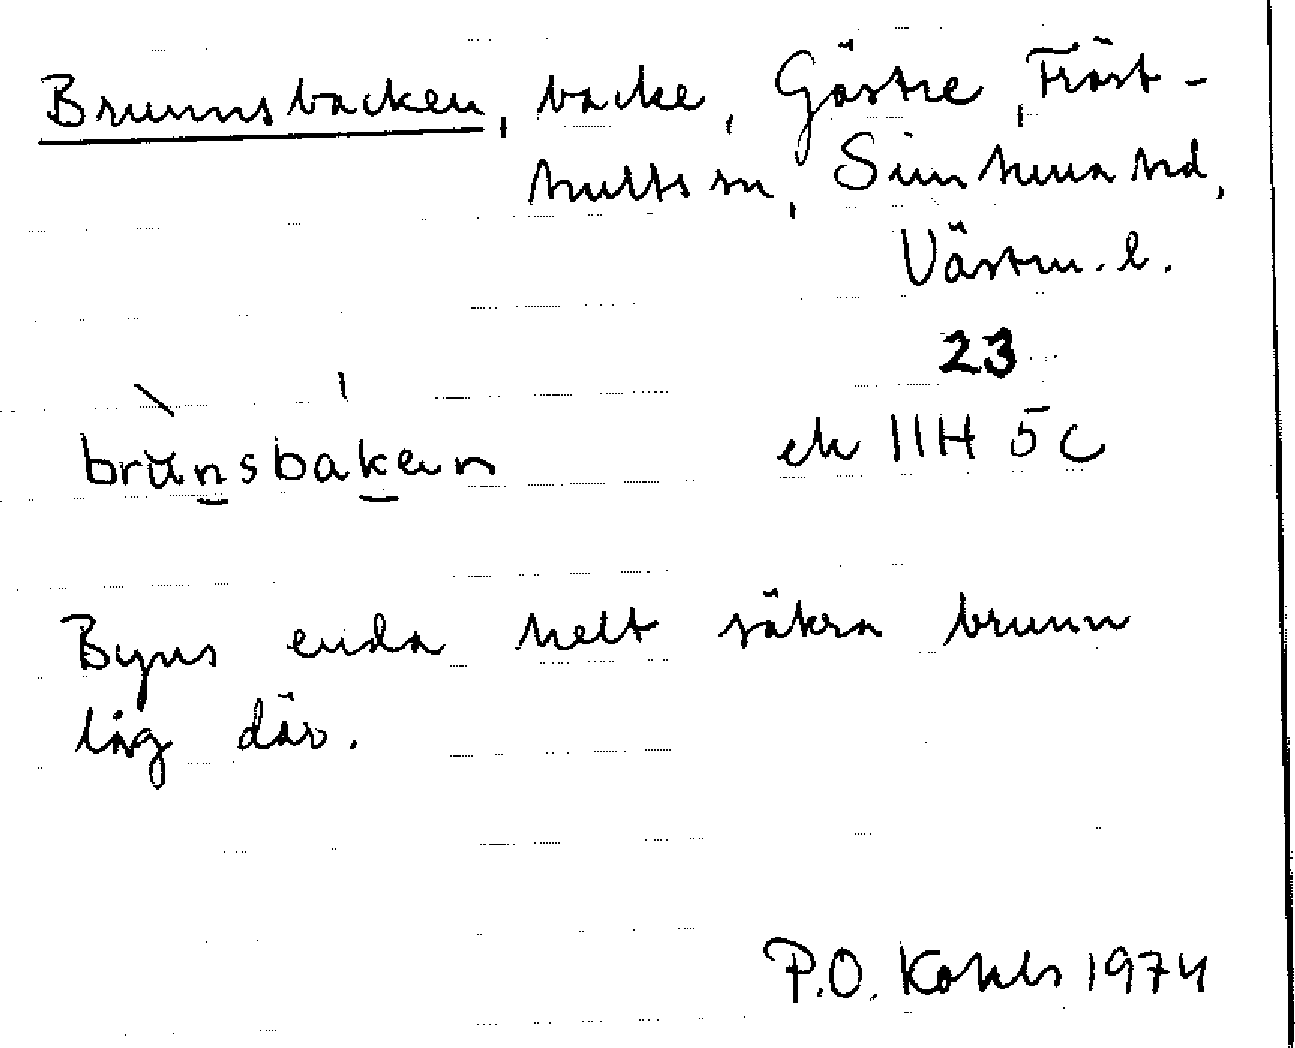 Brunnsbacken, backe, Gästre, Fröst-
hults sn, Simtuna hd,
Västm. l.
23
brùnsbaken
ek 11H 5c
Byns enda helt säkra brunn
låg där.
P.O. Kohls 1974